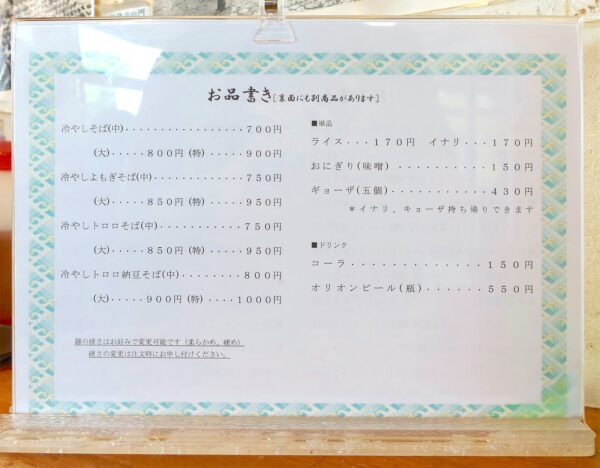 お品書き[裏面にも別商品があります]
冷やしそば(中)・・・・・・・・・・・・・・・・・700円
(大)・・・・・800円 (特)・・・・900円
冷やしよもぎそば(中)・・・・・・・・・・・・・750円
(大)・・・・・850円 (特)・・・・950円
冷やしトロロそば(中)・・・・・・・・・・・・750円
(大)・・・・・850円 (特)・・・・950円
冷やしトロロ納豆そば(中)・・・・・・・・・800円
(大)・・・・・900円 (特)・・・・1000円
麺の硬さはお好みで変更可能です（柔らかめ、硬め）
硬さの変更は注文時にお申し付けください。
■単品
ライス・・・170円 イナリ・・・170円
おにぎり(味噌)・・・・・・・・・・150円
ギョーザ(五個)・・・・・・・・・・430円
＊イナリ、キョーザ持ち帰りできます
■ドリンク
コーラ・・・・・・・・・・・・・・150円
オリオンビール(瓶)・・・・・・・550円